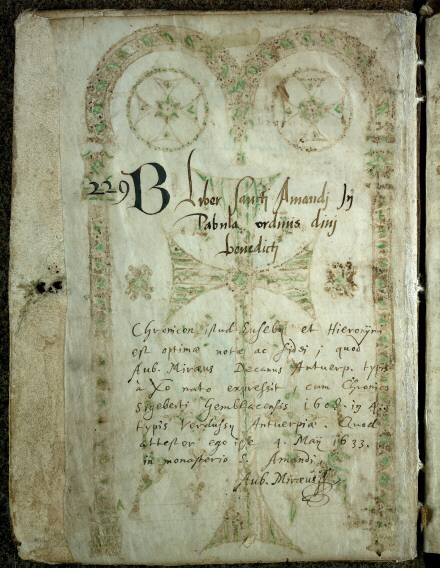 229 B Liber Sancti Amandi In
Pabula ordinis divi
benedicti
Chronicon istud Eusebij et Hieronymi
est optimæ notæ ac fidei; quod
Aub. Miræus Decanus Antuerp. typis
à Xo nato expressit, cum Chronico
Sigeberti Gemblacensis 1608. in 4.
typis Verdussij Antuerpiæ. Quod
attestor ego ipse 4. Maij 1633.
in monasterio S. Amandi,
Aub. Miræus